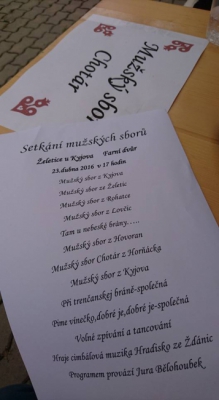 Mužský sbor
Chotár
Setkání mužských sborů
Želetice u Kyjova Farní dvůr
23.dubna 2016 v 17 hodin
Mužský sbor z Kyjova
Mužský sbor ze Želetic
Mužský sbor z Rohatce
Mužský sbor z Lovčic
Tam u nebeské brány.....
Mužský sbor z Hovoran
Mužský sbor Chotár z Horňácka
Mužský sbor z Kyjova
Při trenčanskej bráně-společná
Pime vínečko,dobré je,dobré je-společná
Volné zpívání a tancování
Hraje cimbálová muzika Hradisko ze Ždánic
Programem provází Jura Bělohoubek